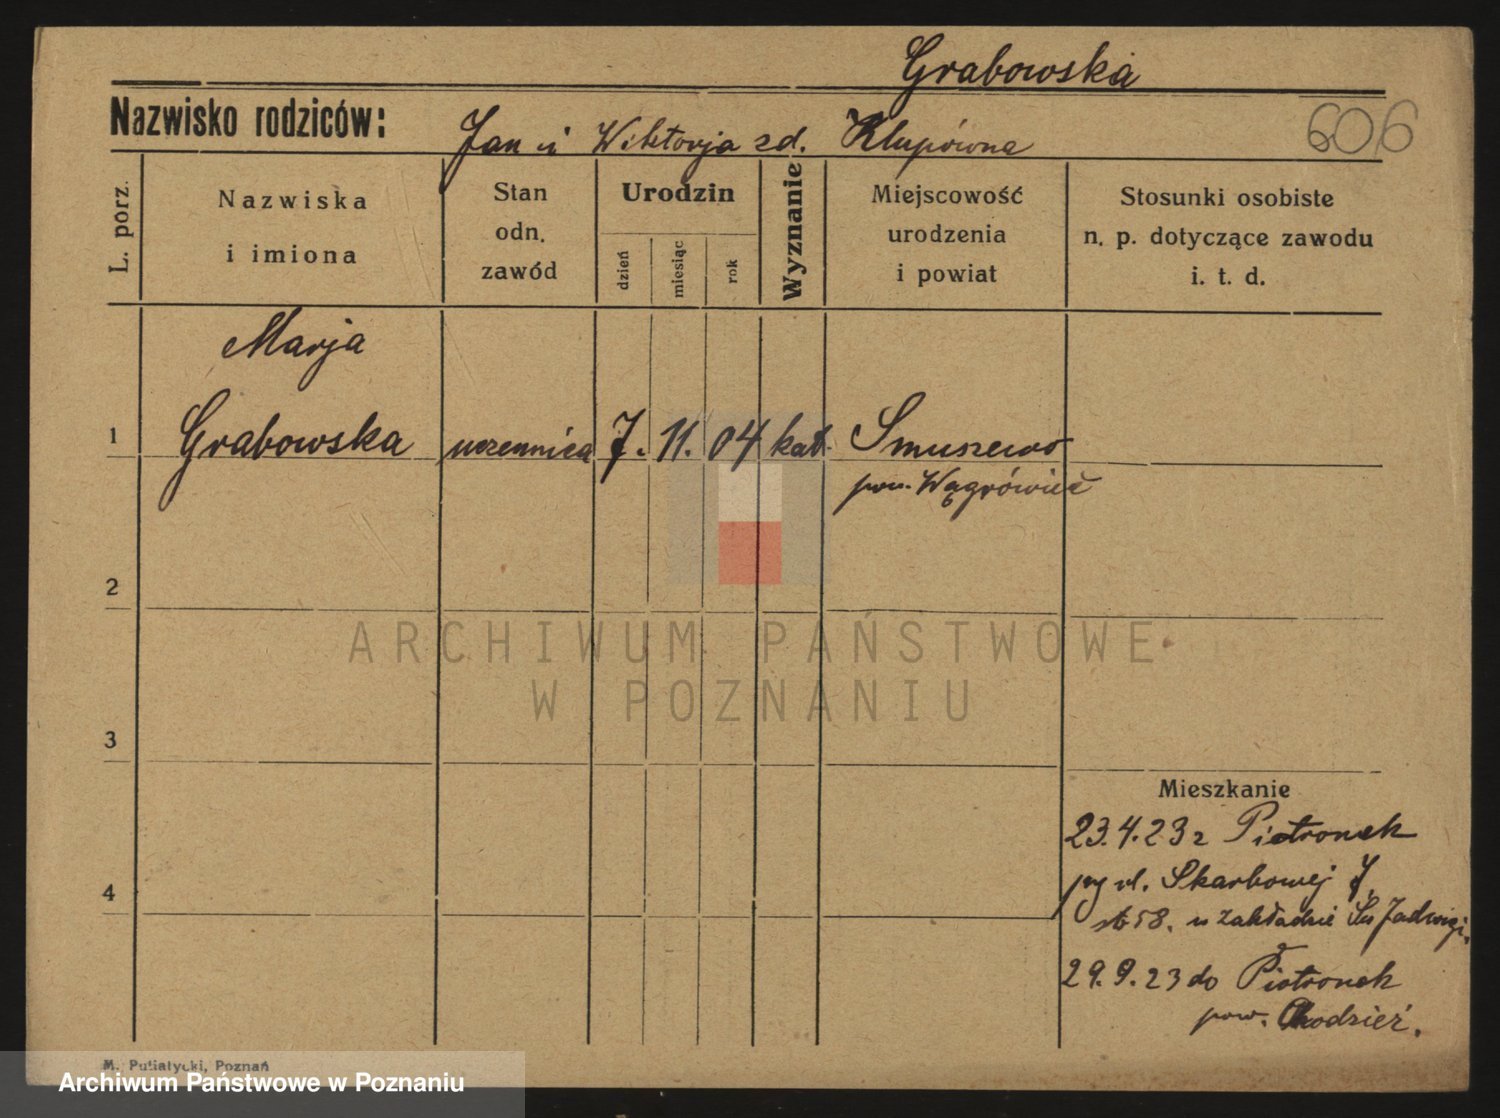 Grabowska
Nazwisko rodziców: Jan i Wiktorja zd. Klupówna
606
L. porz.
Nazwiska i imiona
Stan odn. zawód
Urodzin
dzień
miesiąc
rok
Wyznanie
Miejscowość urodzenia i powiat
Stosunki osobiste n. p. dotyczące zawodu i. t. d.
Marja
1 Grabowska uczennica 7. 11. 04 kat. Smuszewo
pow. Wągrówiec
2
ARCHIWUM PAŃSTWOWE
W POZNANIU
3
Mieszkanie
23.4.23 z Pietronek
ul. Skarbowej 7
58. w zakładzie Św Jadwigi.
4
29.9.23 do Pietronek
pow. Chodzież.
M. Putiatycki, Poznań
Archiwum Państwowe w Poznaniu